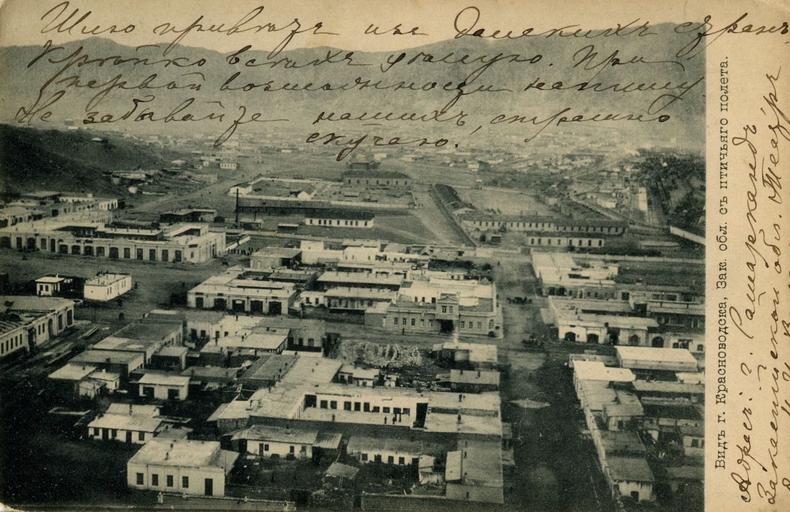 Шлю приветъ изъ далекихъ стран
Крѣпко всѣхъ цѣлую. При
первой возможности напишу
Не забывайте нашихъ, страшно
скучаю.
Видъ г. Красноводска, Зак. обл. съ птичьяго полета.
Адресъ: г. Самаркандъ
обл. Театръ